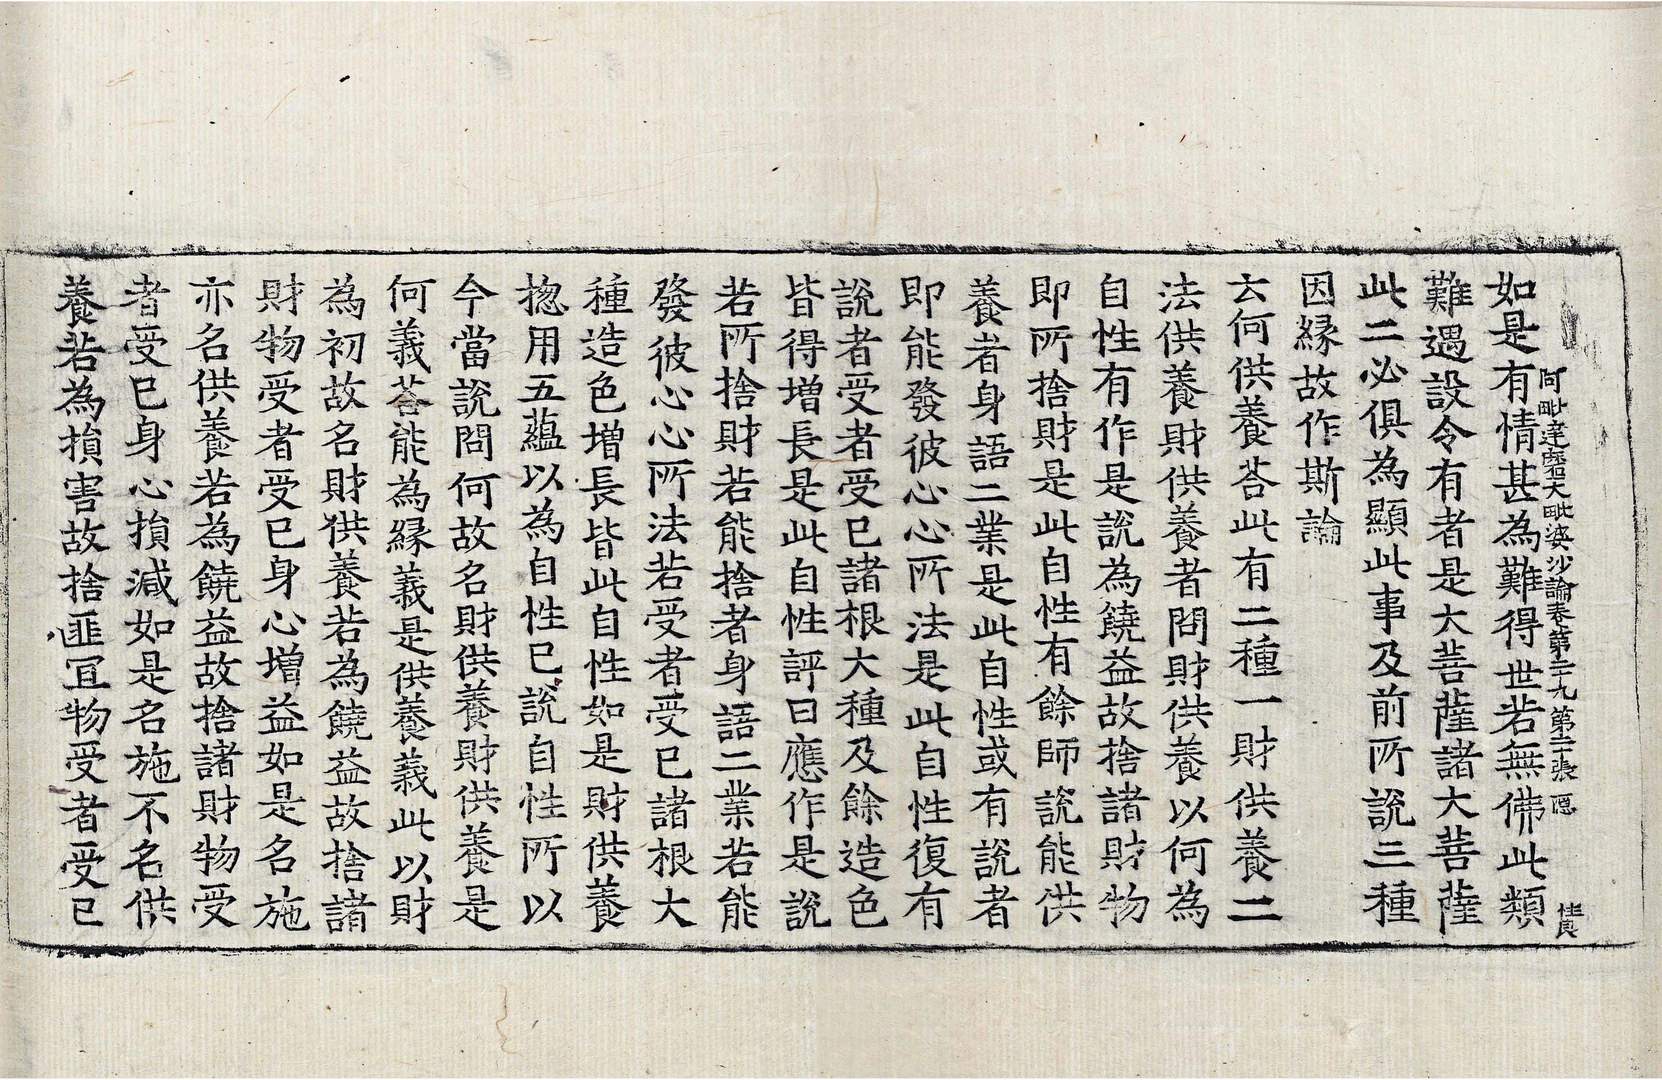 阿毗達磨大毗婆沙論卷第二十九 第二十張 隱
佳民
如是有情甚為難得世若無佛此類
難遇設令有者是大菩薩諸大菩薩
此二必俱為顯此事及前所說三種
因緣故作斯論
云何供養荅此有二種一財供養二
法供養財供養者問財供養以何為
自性有作是說為饒益故捨諸財物
即所捨財是此自性有餘師說能供
養者身語二業是此自性或有說者
即能發彼心心所法是此自性復有
說者受者受已諸根大種及餘造色
皆得增長是此自性評曰應作是說
若所捨財若能捨者身語二業若能
發彼心心所法若受者受已諸根大
種造色增長皆此自性如是財供養
揔用五蘊以為自性已說自性所以
今當說問何故名財供養財供養是
何義荅能為緣義是供養義此以財
為初故名財供養若為饒益故捨諸
財物受者受已身心增益如是名施
亦名供養若為饒益故捨諸財物受
者受已身心損減如是名施不名供
養若為損害故捨匪冝物受者受已